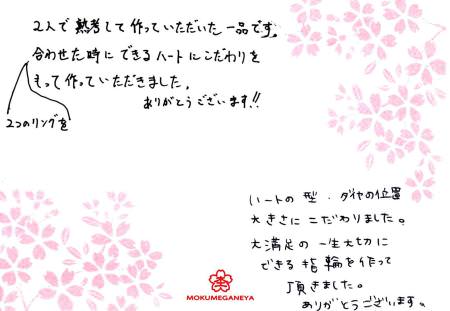 2人で熟考して作っていただいた一品です。
合わせた時にできるハートにこだわりを
もって作っていただきました。
ありがとうございます!!
2つのリングを
ハートの型・ダイヤの位置
大きさにこだわりました。
大満足の一生大切に
できる指輪を作って
頂きました。
ありがとうございます。
MOKUMEGANEYA